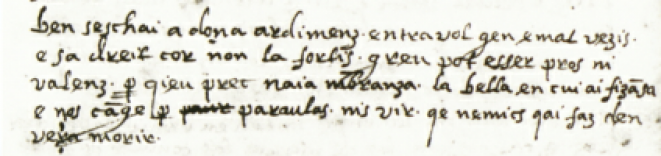 ben seschai a dona ardimenz · entrauol gen e mal uezis ·
e sa dreit cor non la fortis · greu pot esser pros ni
ualenz · p̱ qieu prec naia mẽbranza · la bella en cui ai fizãsa
e nos cãge p̱ paraulas · nis uir · qe nemics qai faz den
ueia morir ·